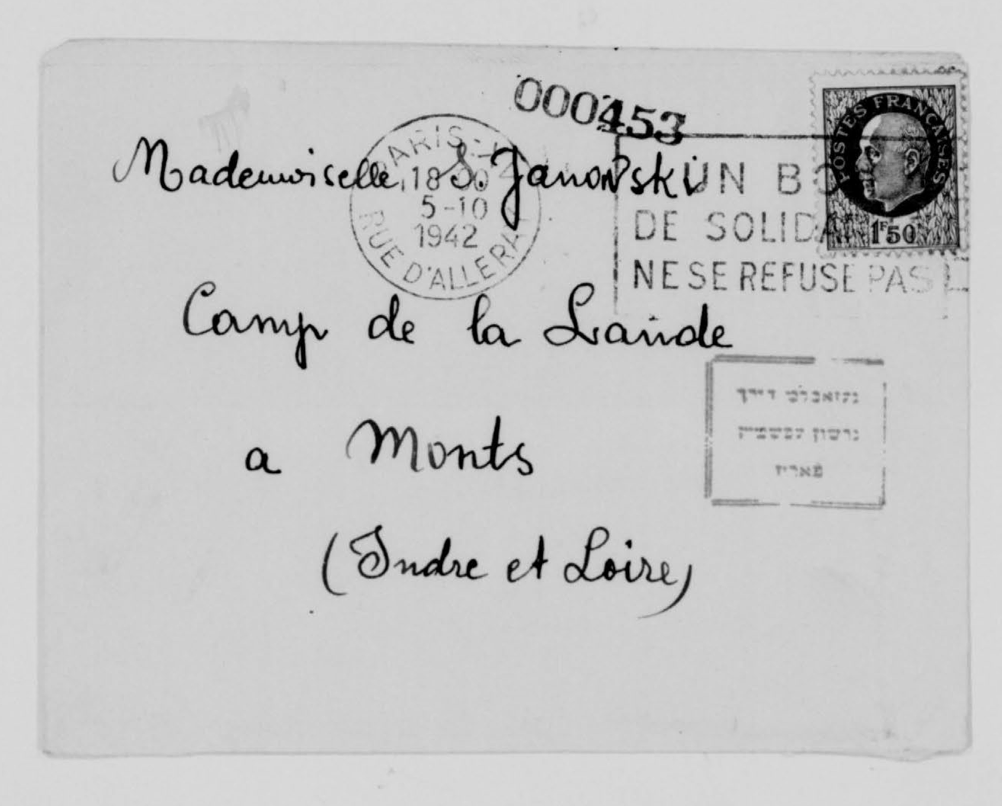 000453
POSTES FRANÇAISES
1F50
PARIS-X
18
5-10
1942
RUE D'ALLERAY
UN BO
DE SOLIDA
NE SE REFUSE PAS
Mademoiselle, S. Janowski
Camp de la Lande
a Monts
(Indre et Loire)
געזאמלט דורך
גרשון עפשטיין
פאריז